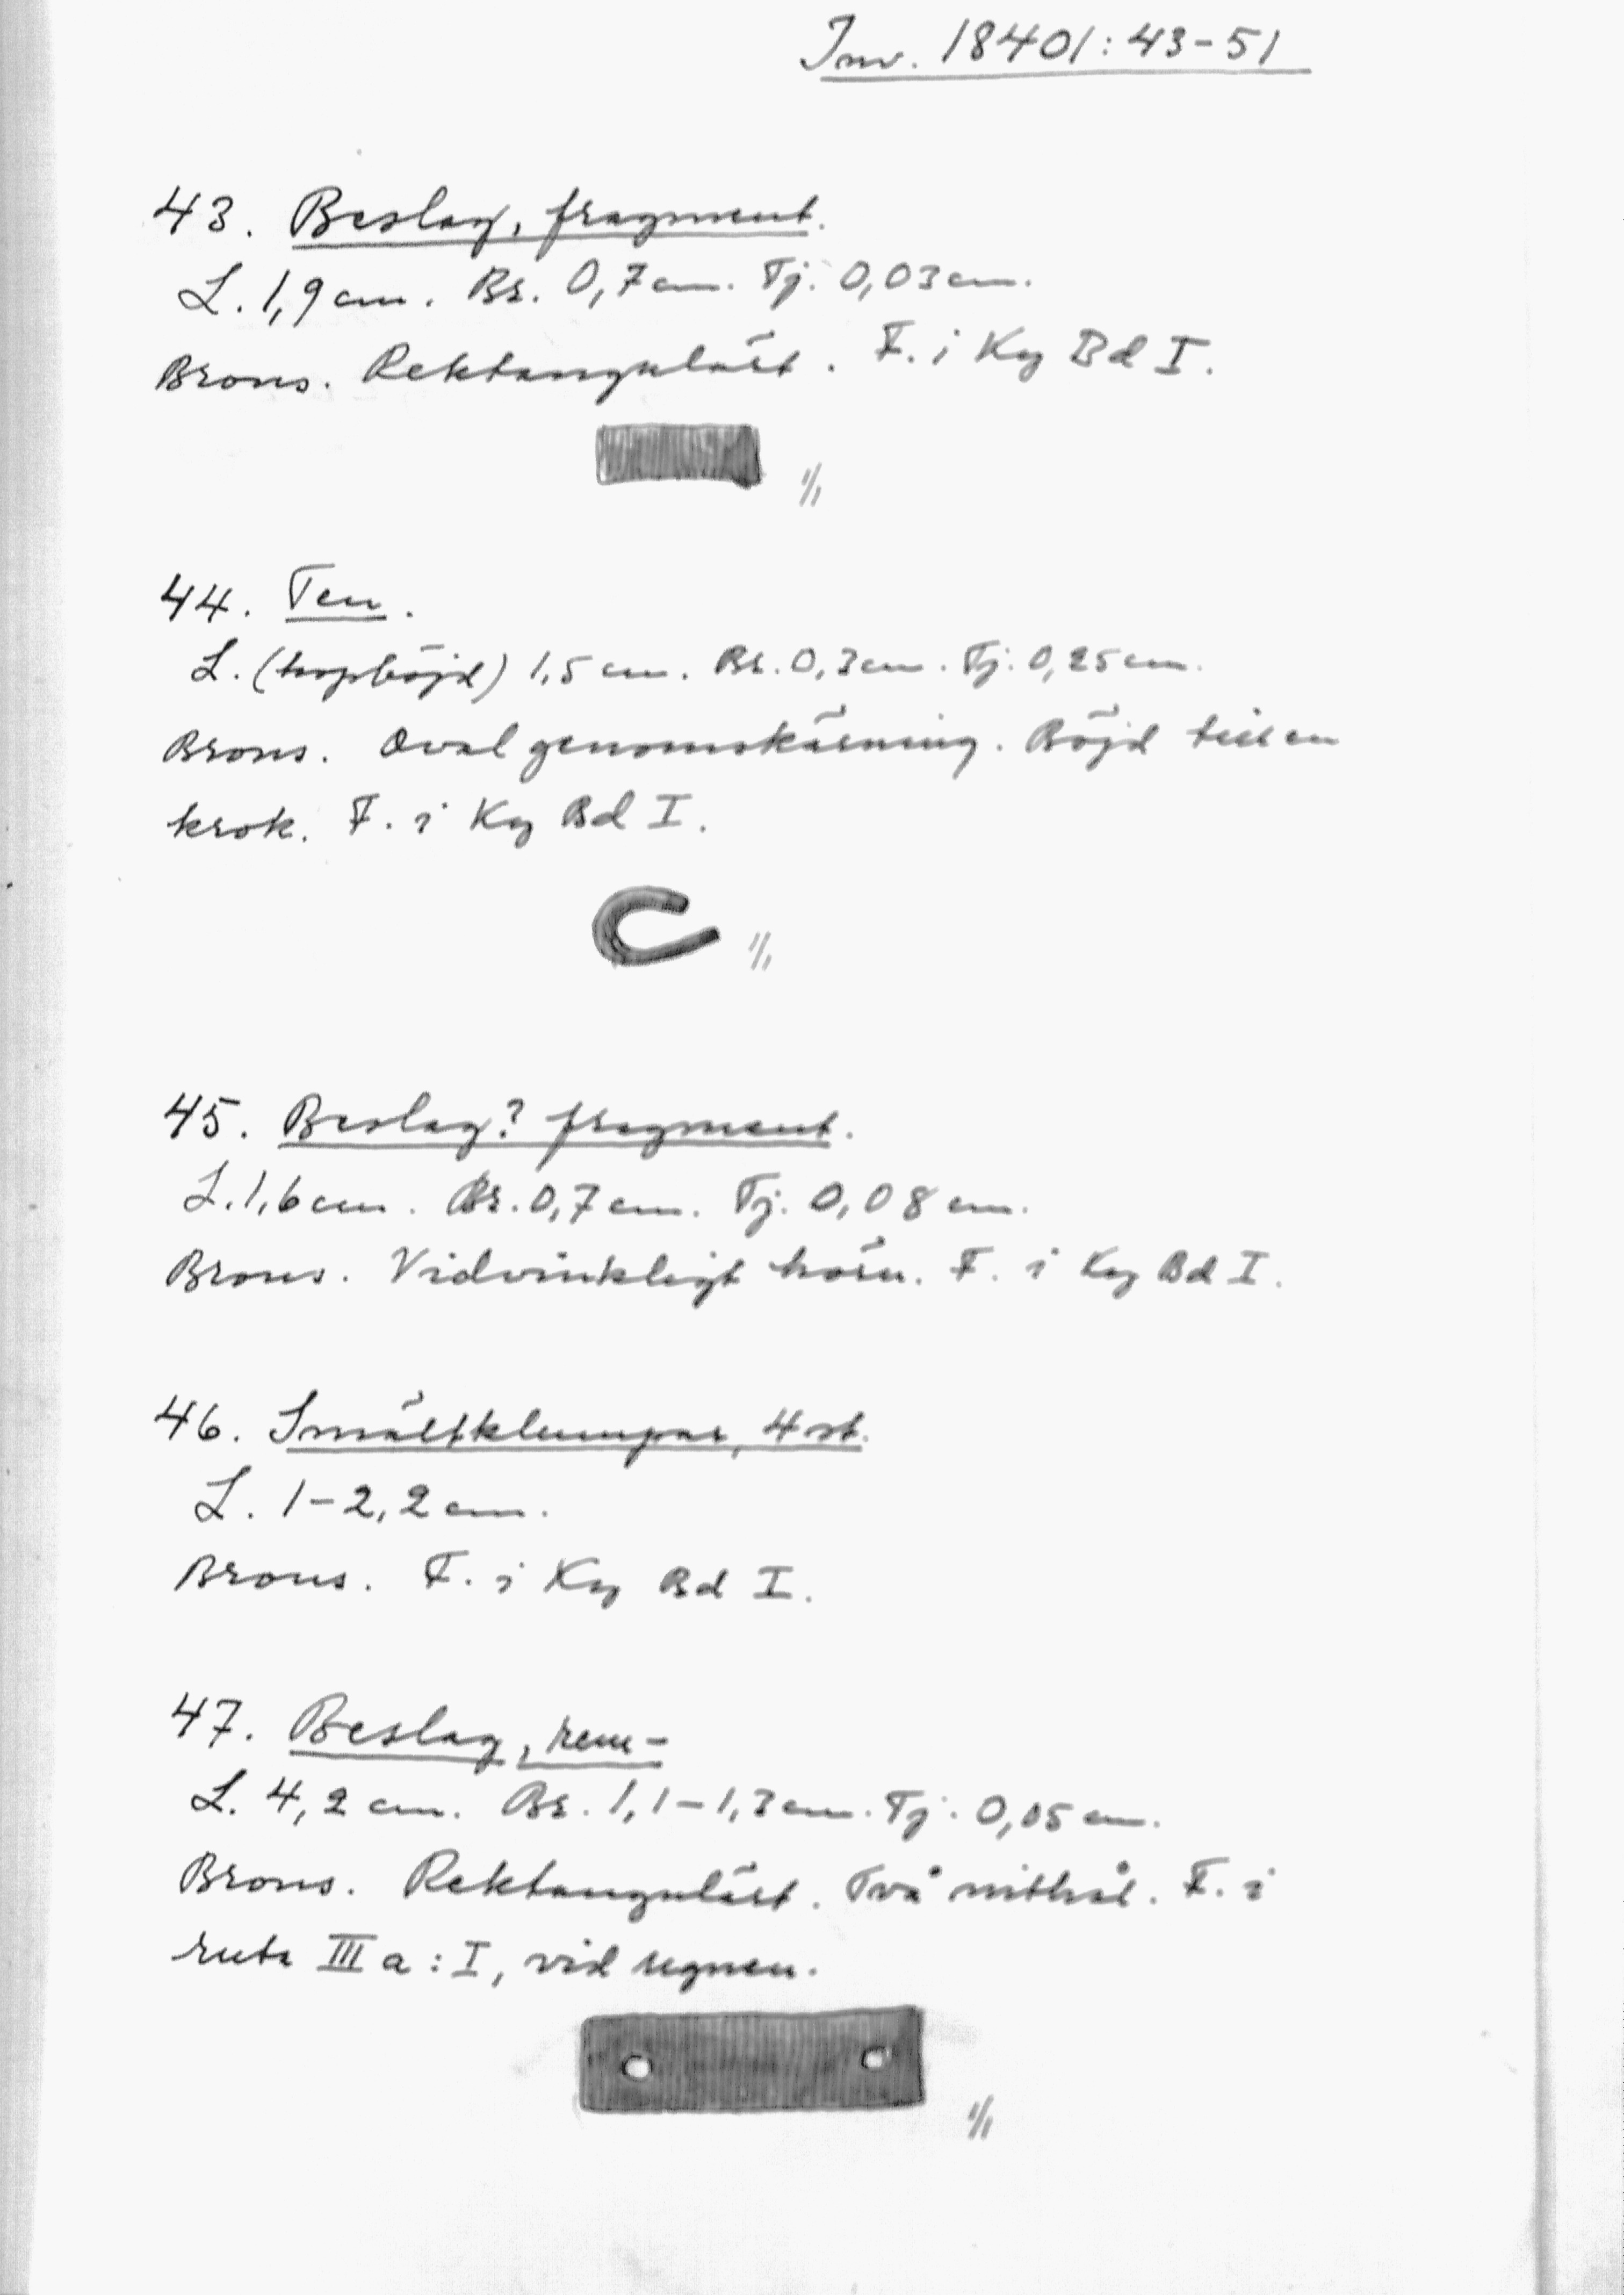 Inv. 18401:43-51
43. Beslag, fragment.
L. 1,9 cm. Br. 0,7 cm. Tj. 0,03 cm.
Brons. Rektangulärt. F. i Kg Bd I.
1/1
44. Ten.
L. (hopböjd) 1,5 cm. Br. 0,3 cm. Tj. 0,25 cm.
Brons. Oval genomskärning. Böjd till en
krok. F. i Kg Bd I.
1/1
45. Beslag? fragment.
L. 1,6 cm. Br. 0,7 cm. Tj. 0,08 cm.
Brons. Vidvinkligt hörn. F. i Kg Bd I.
46. Smältklumpar, 4 st.
L. 1-2,2 cm.
Brons. F. i Kg Bd I.
47. Beslag, rem-
L. 4,2 cm. Br. 1,1-1,3 cm. Tj. 0,05 cm.
Brons. Rektangulärt. Två nithål. F. i
ruta III a : I, vid ugnen.
1/1